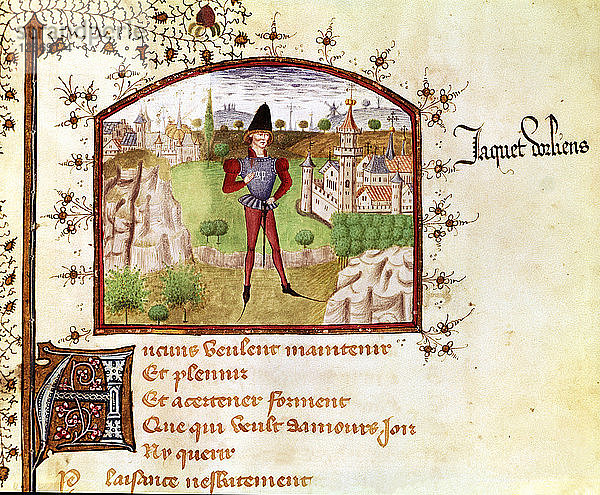 Jaquet dorliens
Aucuns veulent maintenir
Et plenir
Et acertener forment
Que qui veult damours Joir
Ny querir
Plaisance nessutement